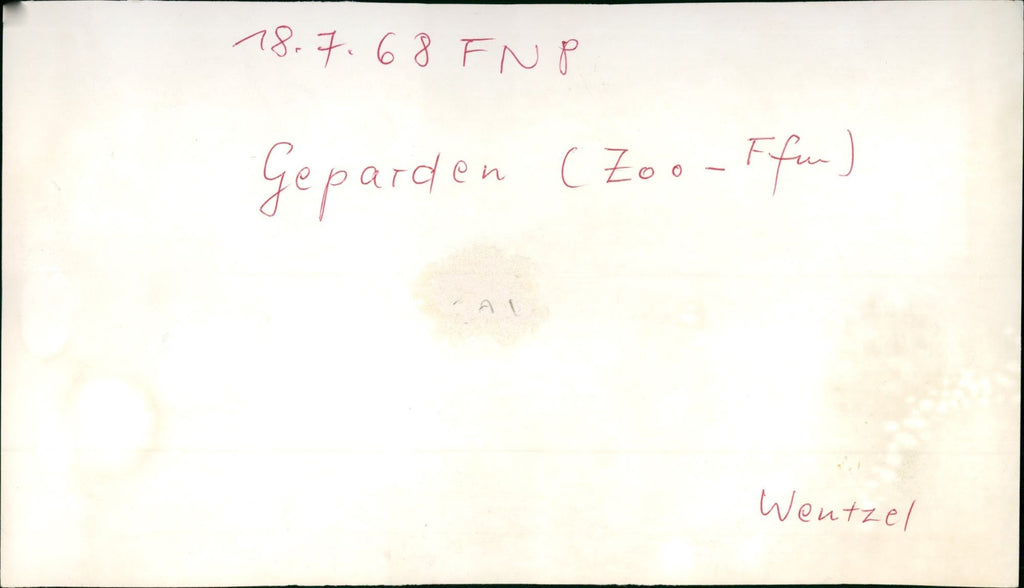 18.7.68 FNP
Geparden (Zoo-Ffm)
Wentzel